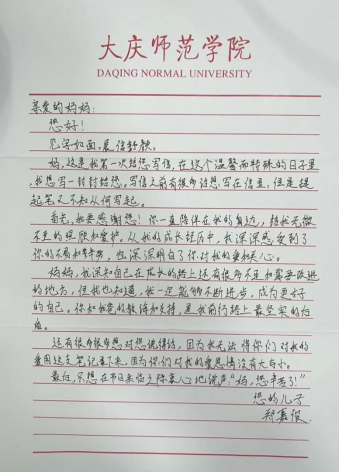 大庆师范学院
DAQING NORMAL UNIVERSITY
亲爱的妈妈：
您好！
见字如面，展信舒颜。
妈，这是我第一次给您写信，在这个温馨而特殊的日子里
我想写一封信给您，写信之前有很多话想写在信里，但是提
起笔又不知从何写起。
首先，我要感谢您！你一直陪伴在我的身边，给我无微
不至的照顾和爱护。从我的成长经历中，我深深感受到了
你的不易和辛苦，也深深明白了你对我的爱和关心。
妈妈，我深知自己在成长的路上还有很多不足和需要改进
的地方，但我也知道，我一定能够不断进步，成为更好
的自己。你和爸爸的教诲和支持，是我前行路上最坚实的
后盾。
还有很多很多想对您说得话，因为我无法将你们对我的
爱用这支笔记录下来，因为你们对我的爱恩情没有大与小。
最后，只想在节日来临之际衷心地说声“妈，您辛苦了！”
您的儿子